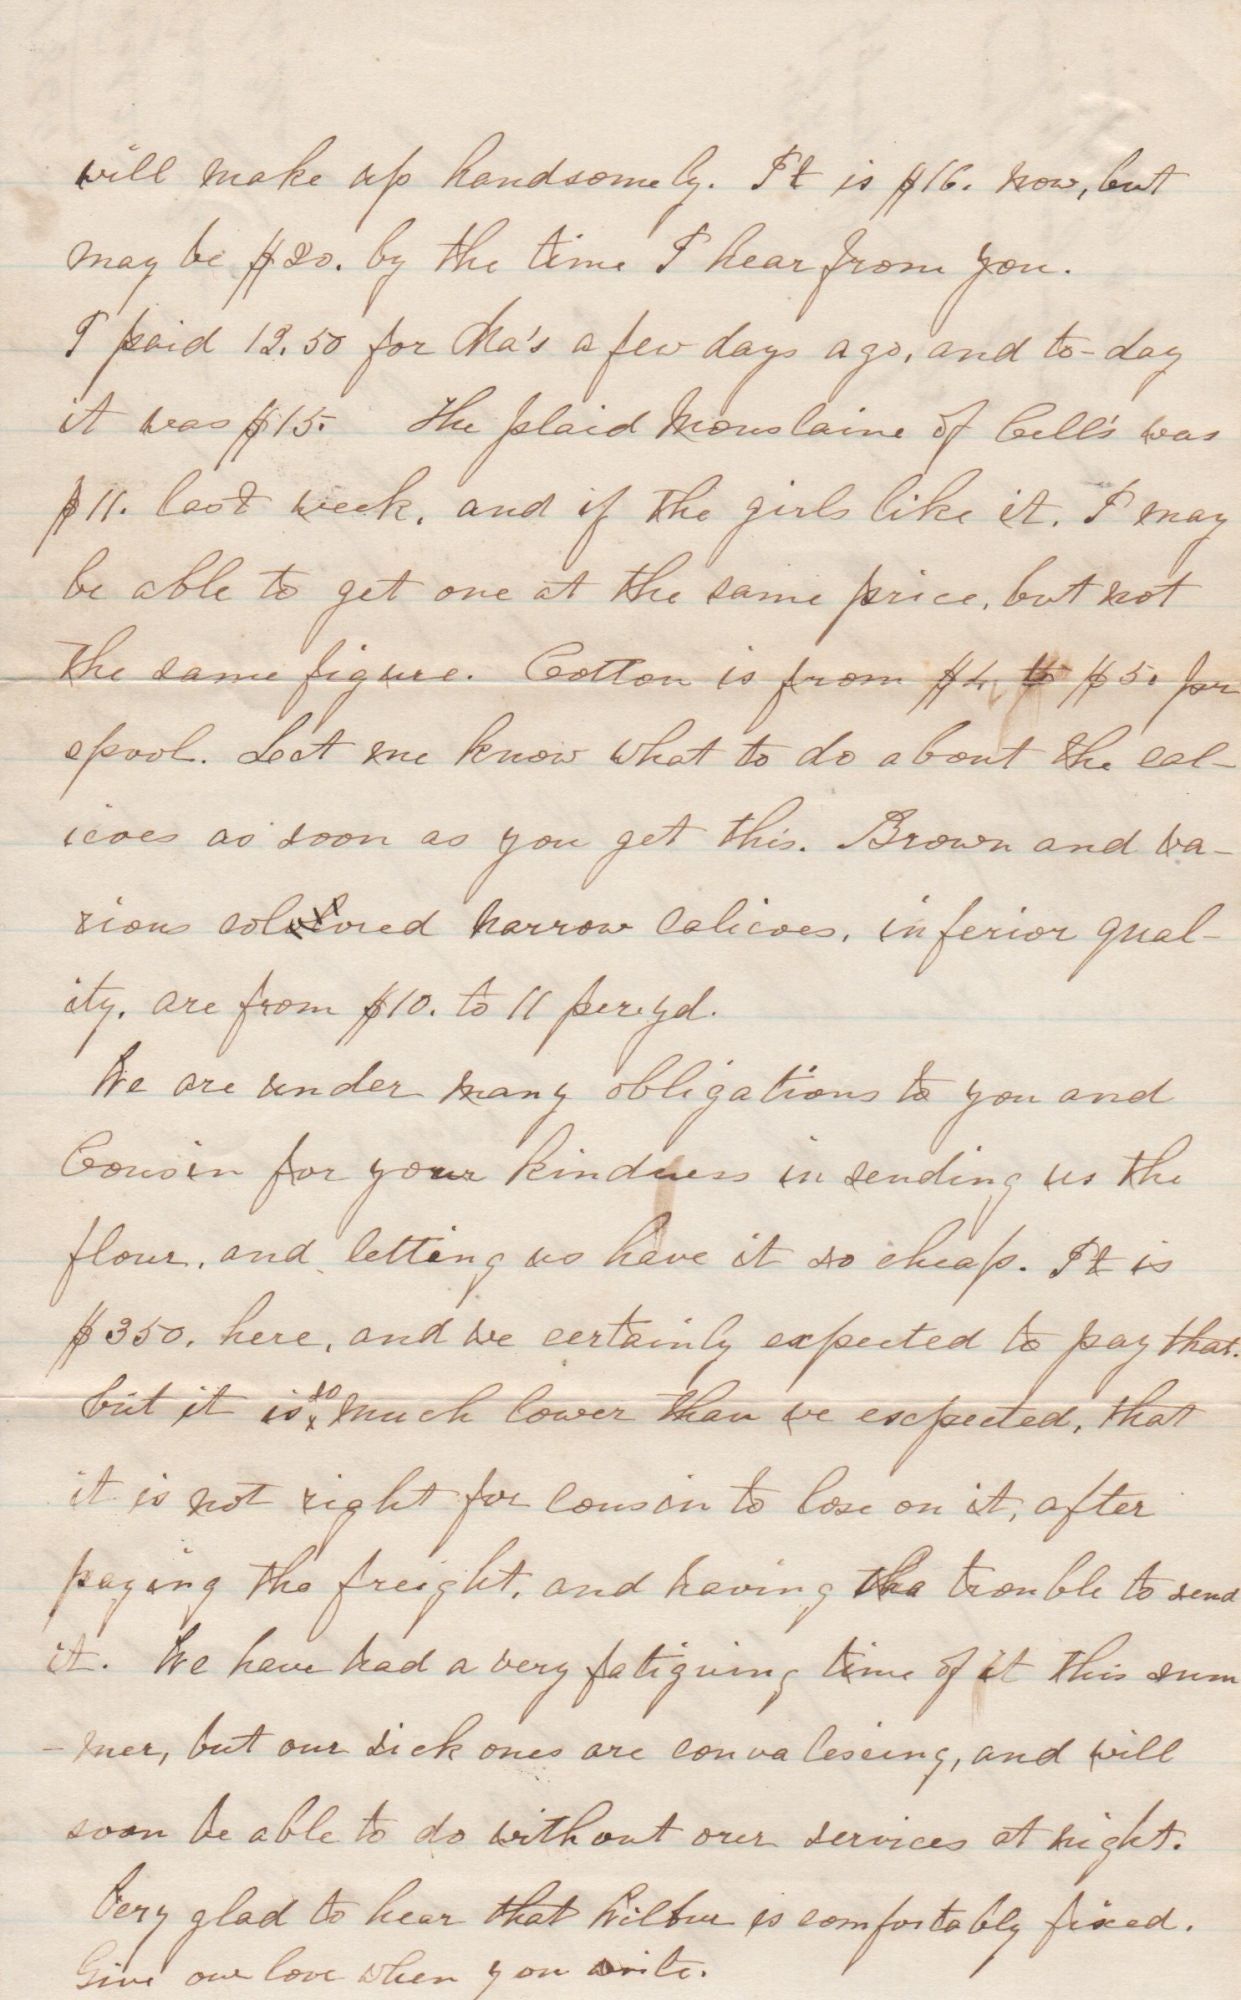 will make up handsomely. It is $16. now, but
may be $20. by the time I hear from you.
I paid 12.50 for Ma's a few days ago, and to-day
it was $15. The plaid Mouslaine of Cell's was
$11. last week, and if the girls like it, I may
be able to get one at the same price, but not
the same figure. Cotton is from $4 to $5. pr
spool. Let me know what to do about the cal-
icoes as soon as you get this. Brown and va-
rious coloured narrow calicoes, inferior qual-
ity, are from $10. to 11 per yd.
We are under many obligations to you and
Cousin for your kindness in sending us the
flour, and letting us have it so cheap. It is
$350. here, and we certainly expected to pay that.
but it is so much lower than we expected, that
it is not right for cousin to lose on it, after
paying the freight, and having the trouble to send
it. We have had a very fatiguing time of it this sum
-mer, but our sick ones are convalescing, and will
soon be able to do without our services at night.
Very glad to hear that Wilbur is comfortably fixed.
Give our love when you write.